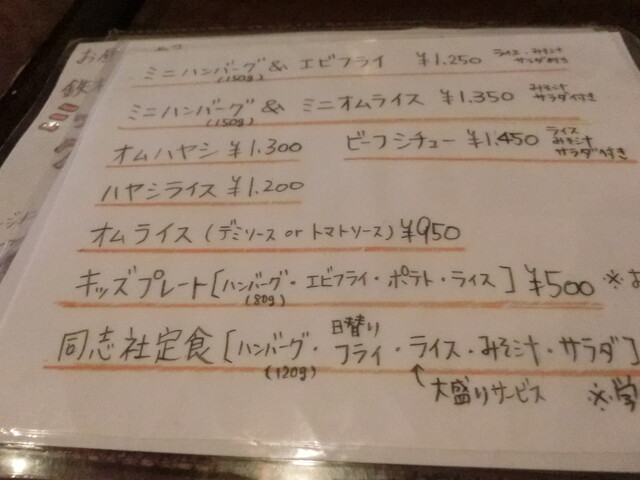 ミニハンバーグ& エビフライ ¥1.250 ライス・みそ汁
(150g) サラダ付き
ミニハンバーグ& ミニオムライス ¥1.350 みそ汁
(150g) サラダ付き
オムハヤシ ¥1.300
ビーフシチュー ¥1.450 ライス
みそ汁
サラダ付き
ハヤシライス ¥1.200
オムライス(デミソース or トマトソース) ¥950
キッズプレート[ハンバーグ・エビフライ・ポテト・ライス] ¥500 ※お
(80g)
日替り
同志社定食[ハンバーグ・フライ・ライス・みそ汁・サラダ]
(120g)
↑大盛りサービス ※学